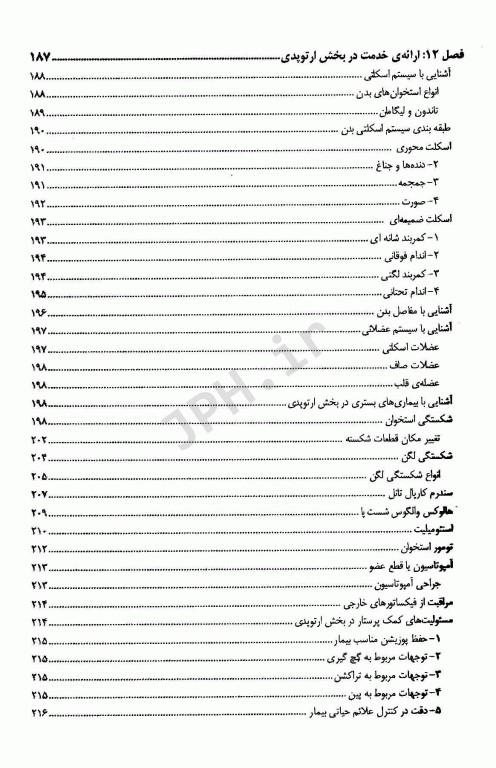 فصل ۱۲: ارائه‌ی خدمت در بخش ارتوپدی ........ ۱۸۷
آشنایی با سیستم اسکلتی ........ ۱۸۸
انواع استخوان‌های بدن ........ ۱۸۸
تاندون و لیگامان ........ ۱۸۹
طبقه بندی سیستم اسکلتی بدن ........ ۱۹۰
اسکلت محوری ........ ۱۹۰
۲- دنده‌ها و جناغ ........ ۱۹۱
۳- جمجمه ........ ۱۹۱
۴- صورت ........ ۱۹۲
اسکلت ضمیمه‌ای ........ ۱۹۳
۱- کمربند شانه ای ........ ۱۹۳
۲- اندام فوقانی ........ ۱۹۴
۳- کمربند لگنی ........ ۱۹۴
۴- اندام تحتانی ........ ۱۹۵
آشنایی با مفاصل بدن ........ ۱۹۶
آشنایی با سیستم عضلانی ........ ۱۹۷
عضلات اسکلتی ........ ۱۹۷
عضلات صاف ........ ۱۹۸
عضله‌ی قلب ........ ۱۹۸
آشنایی با بیماری‌های بستری در بخش ارتوپدی ........ ۱۹۸
شکستگی استخوان ........ ۱۹۸
تغییر مکان قطعات شکسته ........ ۲۰۲
شکستگی لگن ........ ۲۰۴
انواع شکستگی لگن ........ ۲۰۵
سندرم کارپال تانل ........ ۲۰۷
هالوکس والگوس شست پا ........ ۲۰۹
استئومیلیت ........ ۲۱۰
تومور استخوان ........ ۲۱۲
آمپوتاسیون یا قطع عضو ........ ۲۱۳
جراحی آمپوتاسیون ........ ۲۱۳
مراقبت از فیکساتورهای خارجی ........ ۲۱۴
مسئولیت‌های کمک پرستار در بخش ارتوپدی ........ ۲۱۴
۱- حفظ پوزیشن مناسب بیمار ........ ۲۱۵
۲- توجهات مربوط به گچ گیری ........ ۲۱۵
۳- توجهات مربوط به تراکشن ........ ۲۱۵
۴- توجهات مربوط به پین ........ ۲۱۵
۵- دقت در کنترل علائم حیاتی بیمار ........ ۲۱۶
JPH.ir